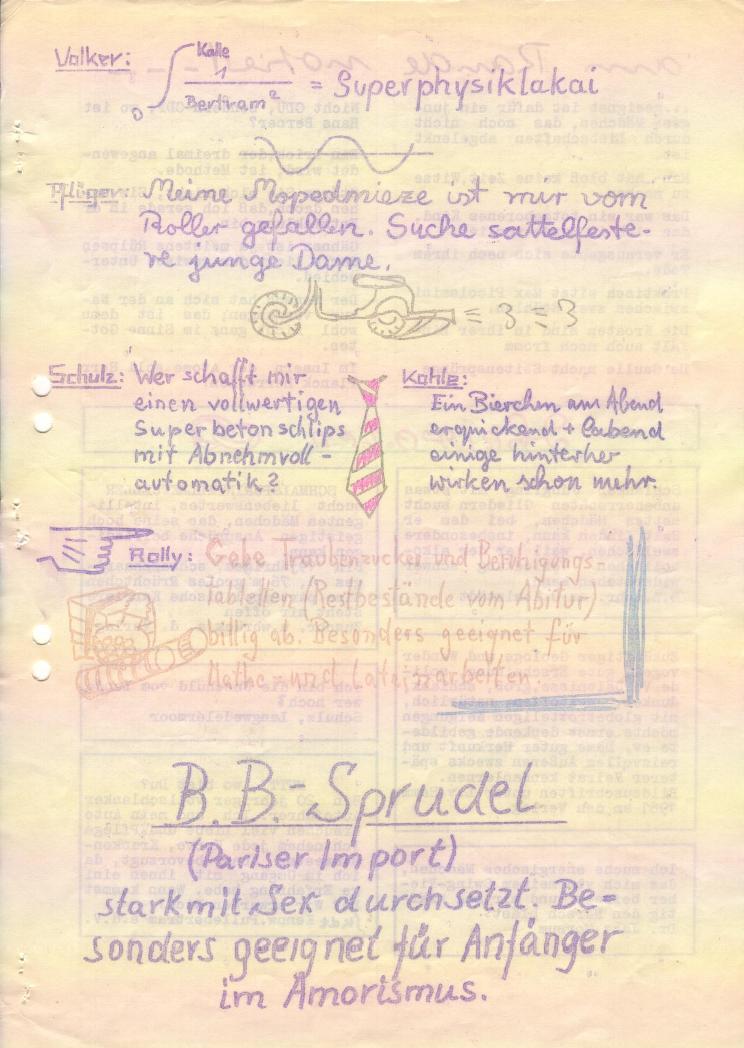 Volker: ∫ Kalle
1
Bertram² = Superphysiklakai
0
Pflüger: Meine Mopedmieze ist mir vom
Roller gefallen. Suche sattelfeste-
re junge Dame.
Schulz: Wer schafft mir
einen vollwertigen
Superbetonschlips
mit Abnehmvoll-
automatik?
Kohlz:
Ein Bierchen am Abend
erquickend + labend
einige hinterher
wirken schon mehr.
Rolly: Gebe Traubenzucker und Beruhigungs-
tabletten (Restbestände vom Abitur)
billig ab. Besonders geeignet für
Mathe- und Lateinarbeiten.
B.B.-Sprudel
(Pariser Import)
stark mit Sex durchsetzt. Be-
sonders geeignet für Anfänger
im Amorismus.